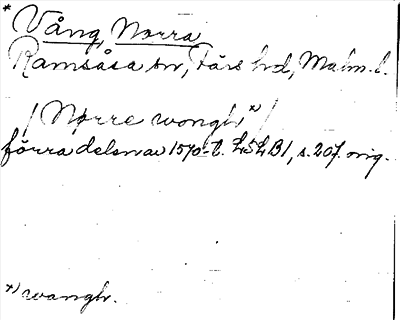 * Vång, Norra
Ramsåsa sn, Färs hd, Malm. l.
/ Nørre wonghr *) /
förra delen av 1570-t. LSLB1, s. 207. orig.
*) wangh.